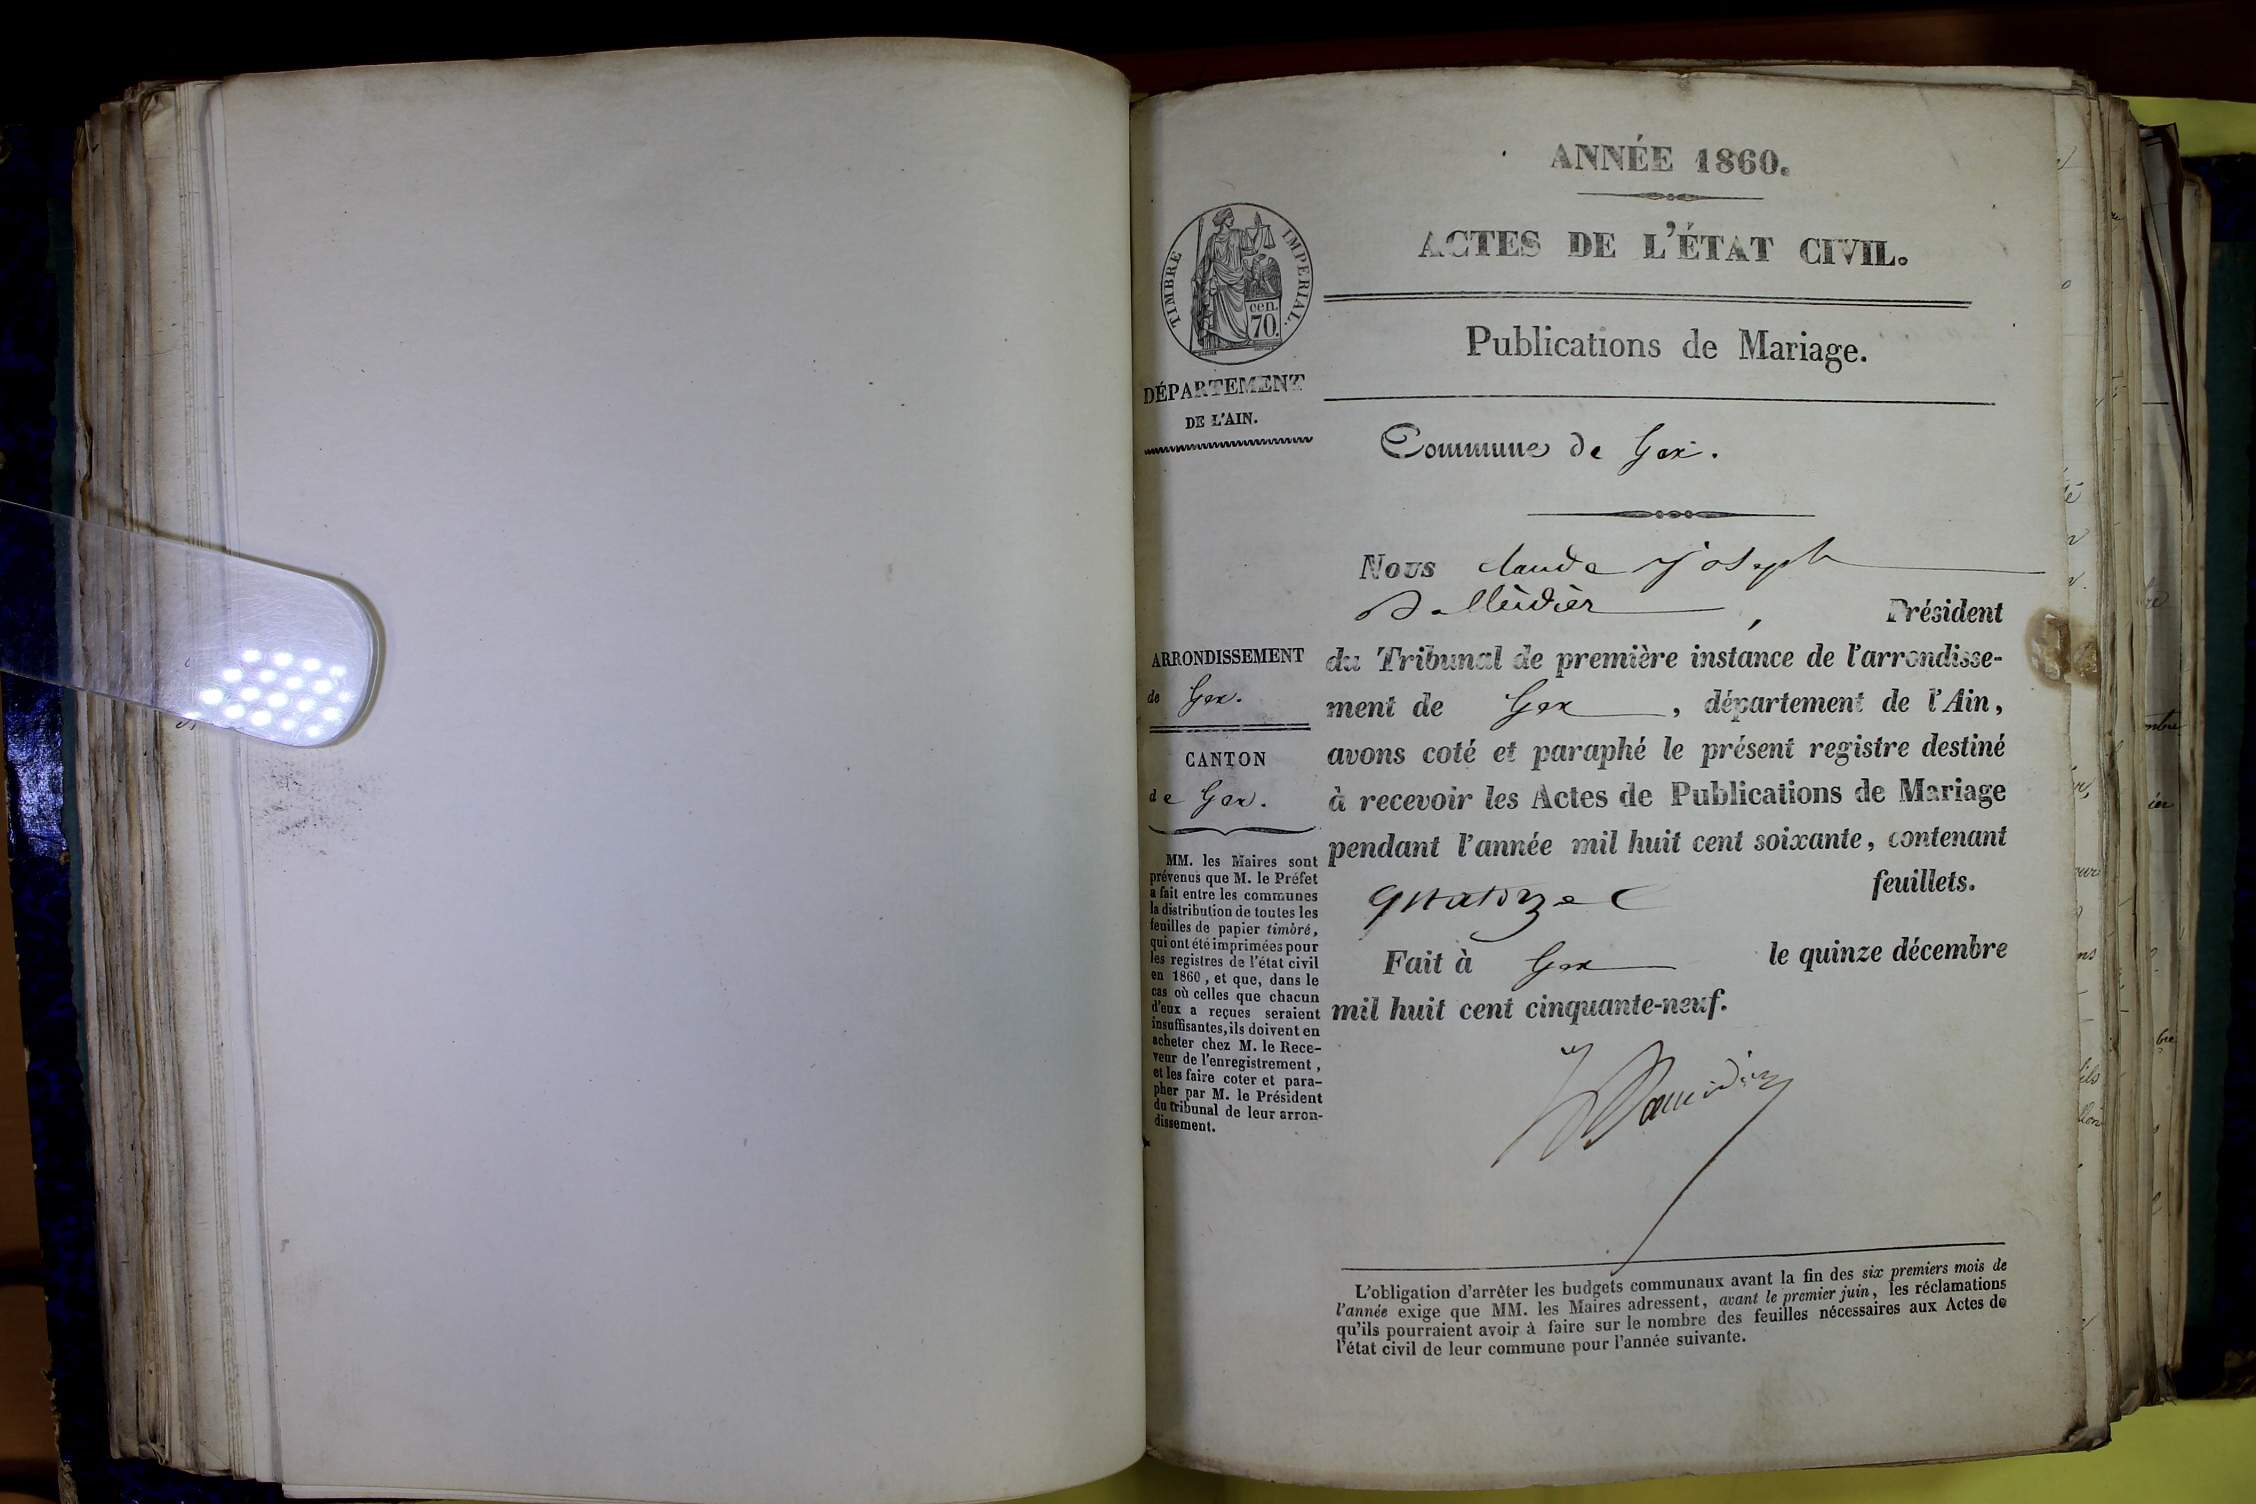 ANNÉE 1860.
ACTES DE L'ÉTAT CIVIL.
TIMBRE IMPERIAL.
cen.
70.
Publications de Mariage.
DÉPARTEMENT
DE L'AIN.
Commune de Gex.
Nous Claude Joseph
, Président
du Tribunal de première instance de l'arrondisse-
ment de Gex, département de l'Ain,
avons coté et paraphé le présent registre destiné
à recevoir les Actes de Publications de Mariage
pendant l'année mil huit cent soixante, contenant
quatorze feuillets.
Fait à Gex le quinze décembre
mil huit cent cinquante-neuf.
ARRONDISSEMENT
de Gex.
CANTON
de Gex.
MM. les Maires sont
prévenus que M. le Préfet
a fait entre les communes
la distribution de toutes les
feuilles de papier timbré,
qui ont été imprimées pour
les registres de l'état civil
en 1860, et que, dans le
cas où celles que chacun
d'eux a reçues seraient
insuffisantes, ils doivent en
acheter chez M. le Rece-
veur de l'enregistrement,
et les faire coter et para-
pher par M. le Président
du tribunal de leur arron-
dissement.
L'obligation d'arrêter les budgets communaux avant la fin des six premiers mois de
l'année exige que MM. les Maires adressent, avant le premier juin, les réclamations
qu'ils pourraient avoir à faire sur le nombre des feuilles nécessaires aux Actes de
l'état civil de leur commune pour l'année suivante.